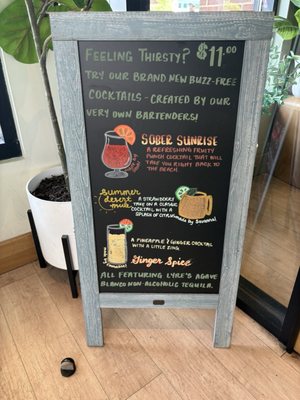 Feeling Thirsty? $11.00
Try our brand new buzz-free
cocktails - created by our
very own bartenders!
Sober Sunrise
A refreshing fruity
punch cocktail that will
take you right back to
the beach.
Summer
desert
mule
A strawberry
take on a classic
cocktail with a
splash of citrus
Savannah
A pineapple & ginger cocktail
with a little zing
Ginger Spice
All featuring Lyre's Agave
Blanco non-alcoholic tequila.